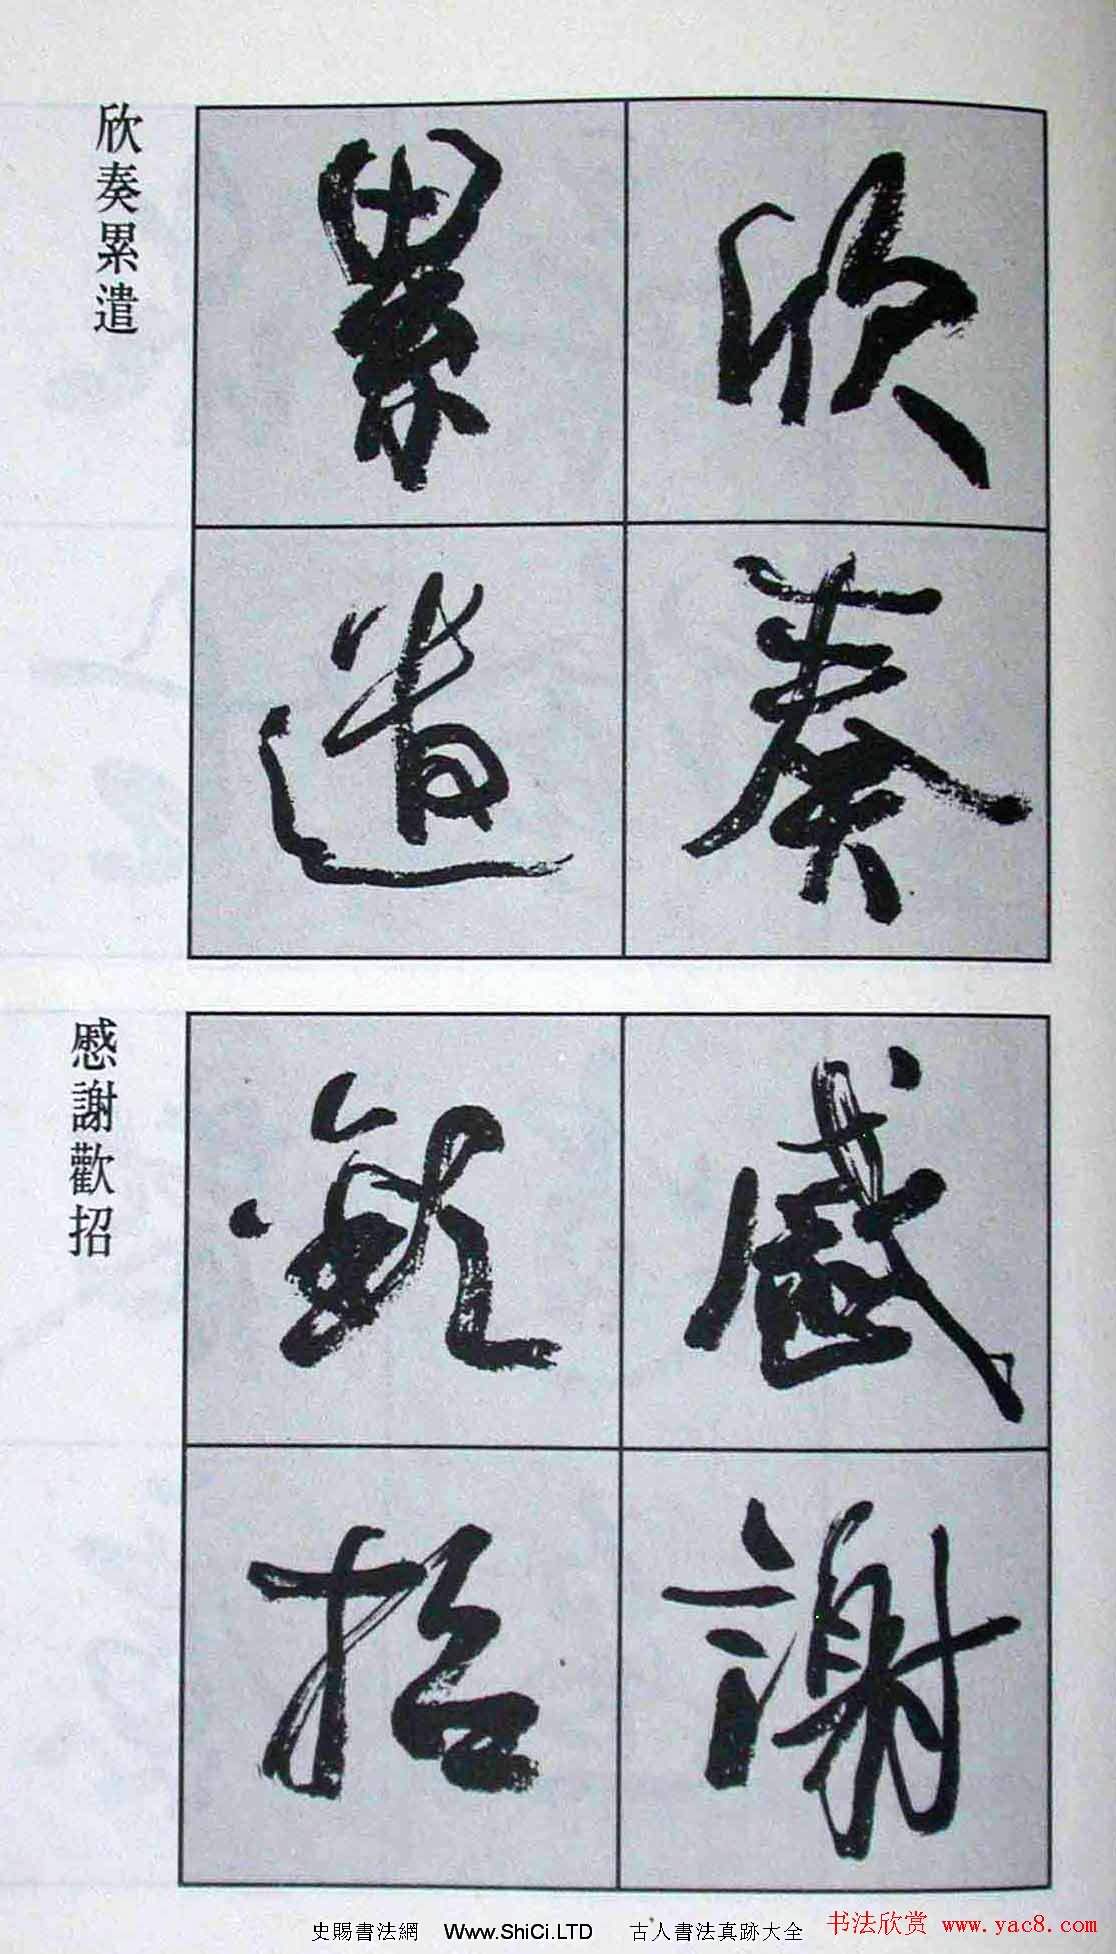 欣奏累遣
欣奏
累遣
慼謝歡招
慼謝
歡招
史賜書法網 Www.ShiCi.LTD 古人書法真跡大全
书法欣赏 www.yac8.com